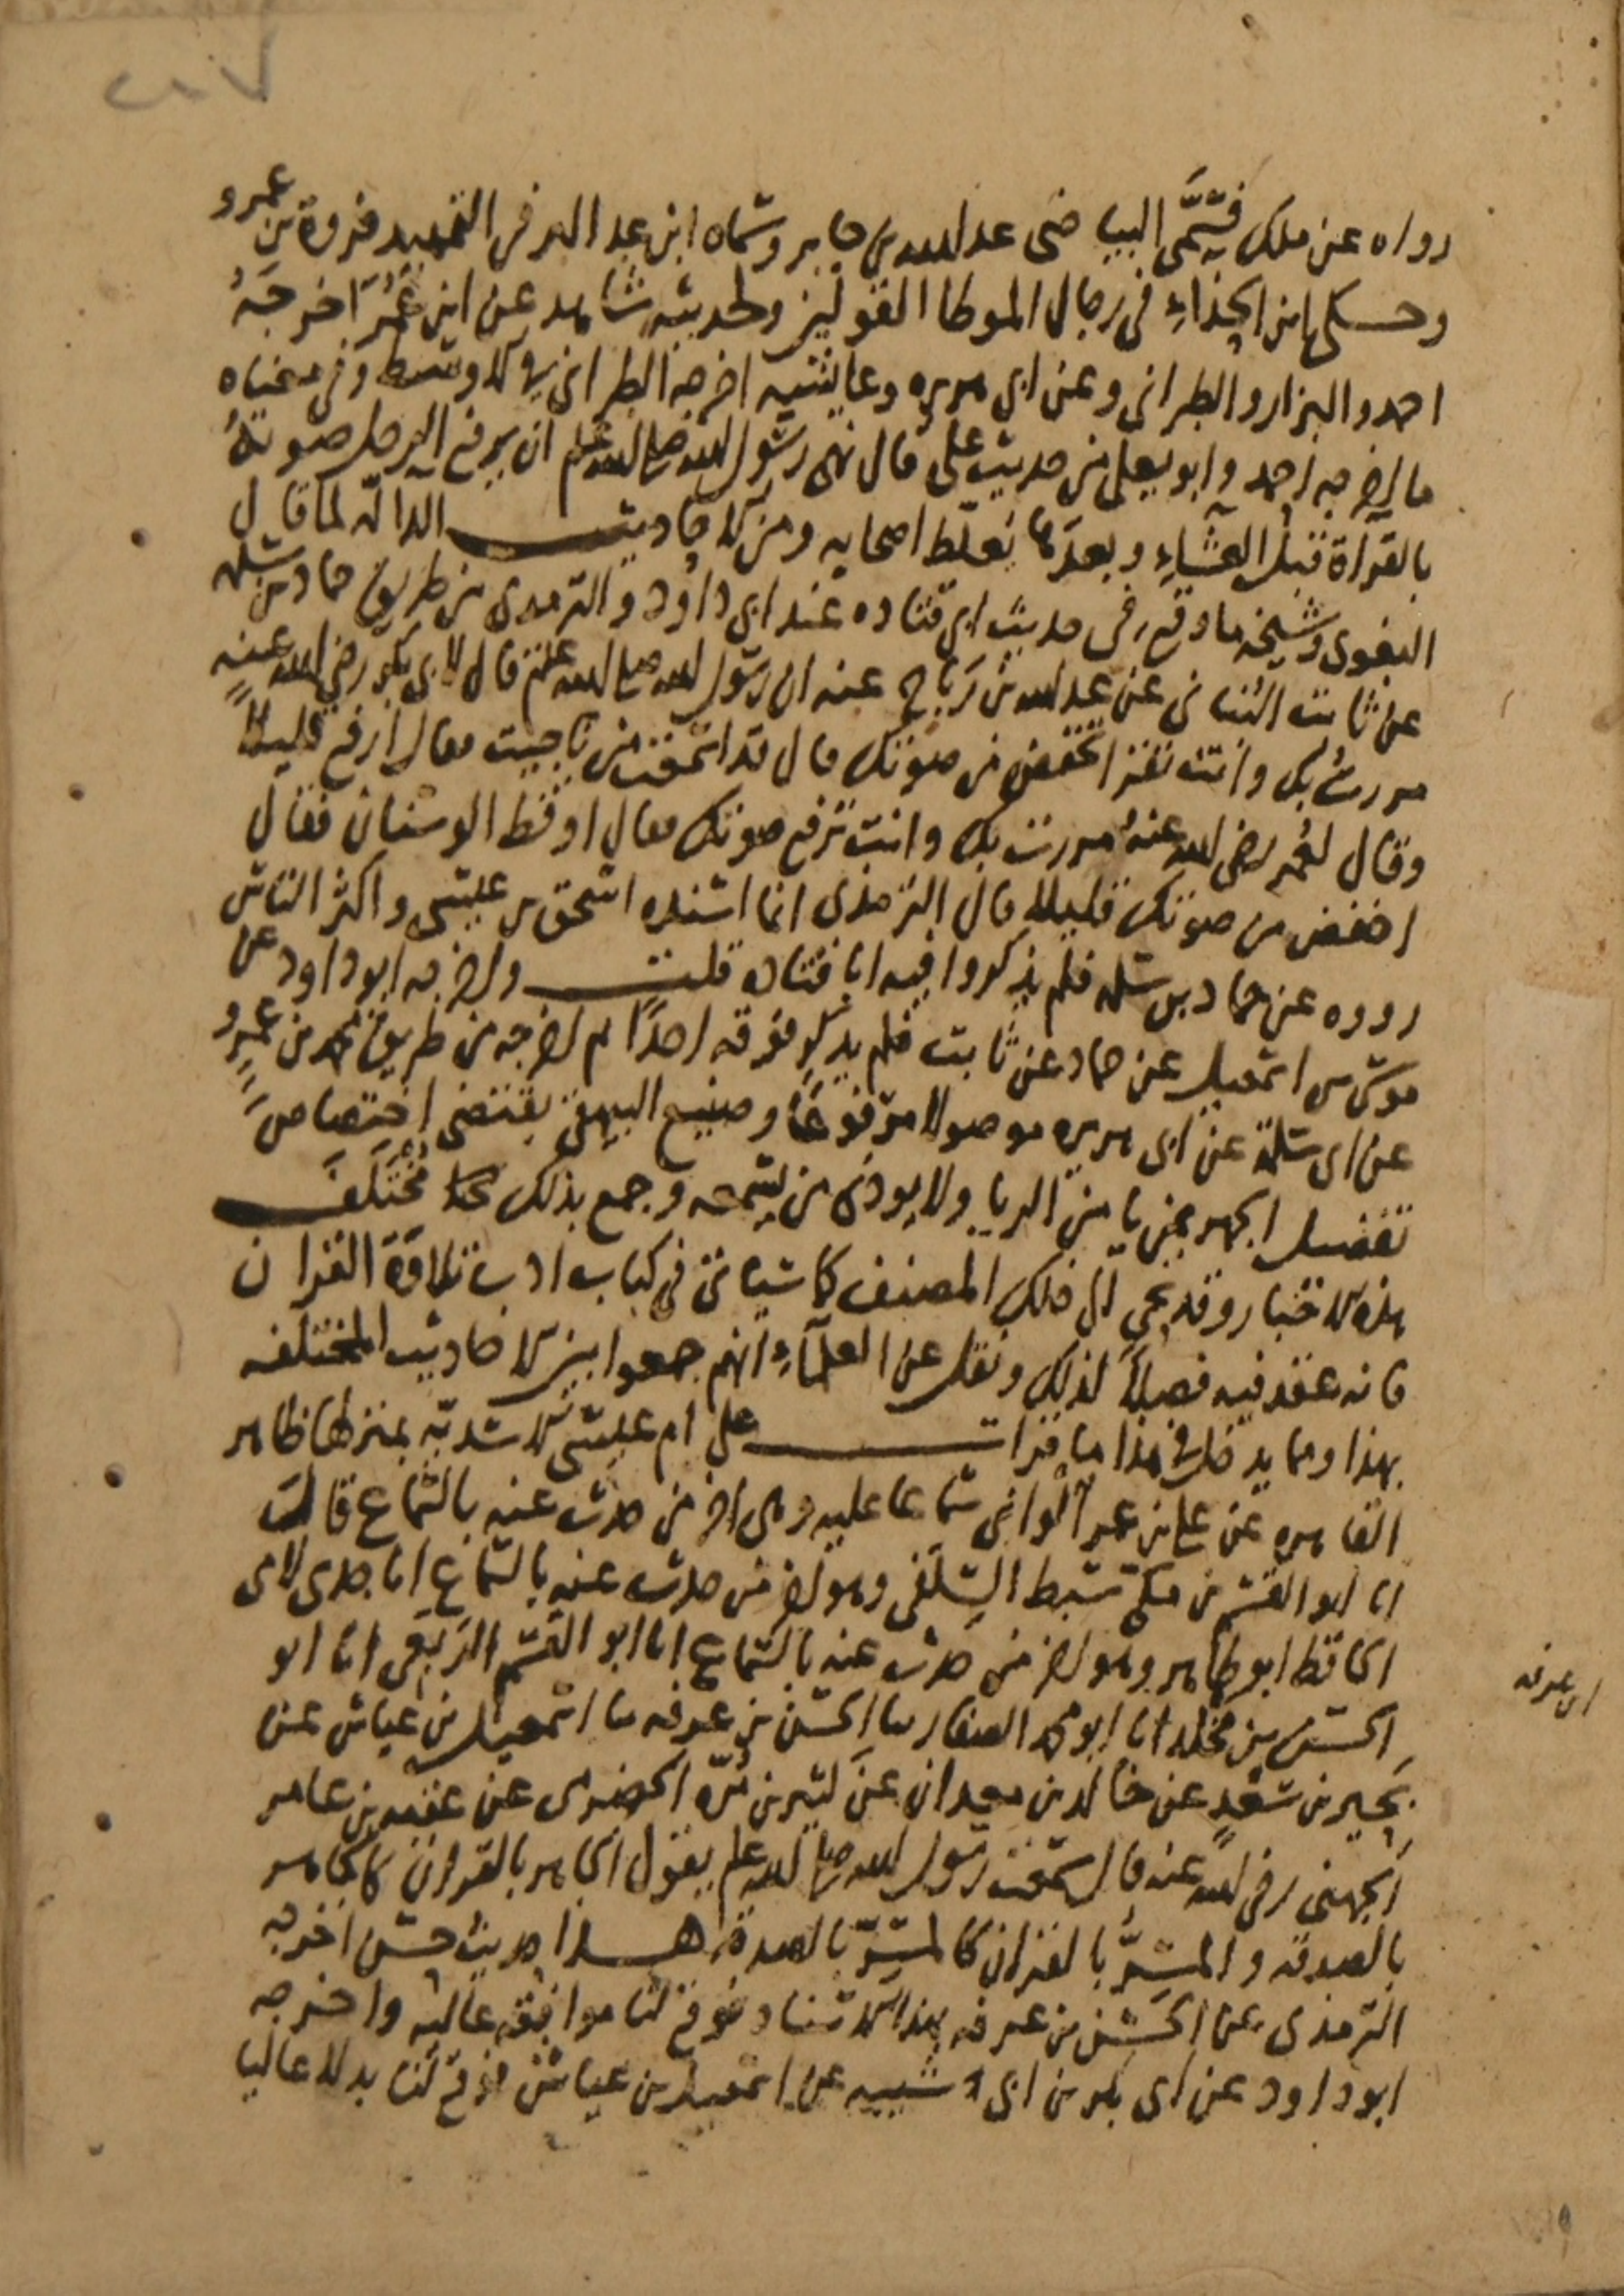 ٢٠٧
رواه عن ملك فسَمَّى البياضى عبد الله بن جابر وسماه ابن عبد البر فى التمهيد فروة بن عمرو
وحكى ابن الحذاءِ فى رجال الموطا القولين ولحديثه شاهد عن ابن عُمَر اخرجَهُ
احمد والبزار والطبرانى وعن ابى هريره وعايشه اخرجه الطبرانى فى الاوسط وفى معناه
ما اخرجه احمد وابو يعلى من حديث على قال نهى رسُول الله صلى الله عليه وسلم ان يرفع الرجل صوتهُ
بالقرآة قبل العشاءِ وبعدَها يغلط اصحابه ومن الاحاديث الدالّه لما قال
البغوى وشيخه ما وقع فى حديث ابى قتاده عند ابى داود والترمدى من طريق حماد بن سلمه
عن ثابت البُنانى عن عبد الله بن رَبَاح عنه ان رسُول الله صلى الله عليه وسلم قال لابى بكر رضى الله عنه
مررتُ بك وانت تقرا تخفض من صوتك قال قد اسمعت من ناجيت فقال ارفع قليلًا
وقال لعُمر رضى الله عنهُ مررت بك وانت ترفع صوتك فقال اوقظ الوسنان فقال
اخفض من صوتك قليلا قال الترمذى انما اسنده اسحق بن عيسى واكثر الناس
رووه عن حماد بن سلمه فلم يذكروا فيه ابا قتاده قلت واخرجه ابو داود عن
موسَى بن اسمعيل عن حماد عن ثابت فلم يذكر فوقه احدًا ثم اخرجه من طريق محمد بن عَمرٍو
عن ابى سَلمة عن ابى هريره موصولا مرفوعًا وصنيع البيهقى يقتضى اختصاصَ
تفضيل الجهر بمن يامن الريا ولا يوذى من يسمعه وجمع بذلك مُختلَف
هذه الاخبار وقد نحى الى ذلك المصنف كما سياتى فى كتاب ادب تلاوة القرآن
فانه عقد فيه فصلًا لذلك ونقل عن العلمآءِ انهم جمعوا بين الاحاديث المختلفه
بهذا ومما يدخل فى هذا ما قرات على ام عيسَى الاسَديّه بمنزلها ظاهر
القاهره عن على بن عمر الوانى سَماعا عليه وهى اخر من حدث عنه بالسَّماع قالت
انا ابو القسم بن مكى سبط السِّلَفى وهو اخر من حدث عنه بالسَّماع انا جدى لامى
الحافظ ابو طاهر وهو اخر من حدث عنه بالسَّماع انا ابو القسم الرَبَعى انا ابو
الحسَن بن مَخلد انا ابو محمد الصفار ثنا الحسَن بن عرفه ثنا اسمعيل بن عياش عن
بَحِير بن سَعْدٍ عن خالد بن معدان عَن كثير بن مُرّه الحضرمى عن عقبه بن عامر
الجهنى رضى الله عنه قال سَمعت رسُول الله صلى الله عليه وسلم يقول الجاهر بالقرآن كالجاهر
بالصدقه والمسِرُّ بالقرآن كالمسِرّ بالصدقة هــذا حديث حسَن اخرجه
الترمذى عن الحسَن بن عرفه بهذا الاسناد فوقع لنا موافقه عاليه واخرجه
ابو داود عن ابى بكر بن ابى شيبه عن اسمعيل بن عياش فوقع لنا بدلا عاليا
ابن عرفه